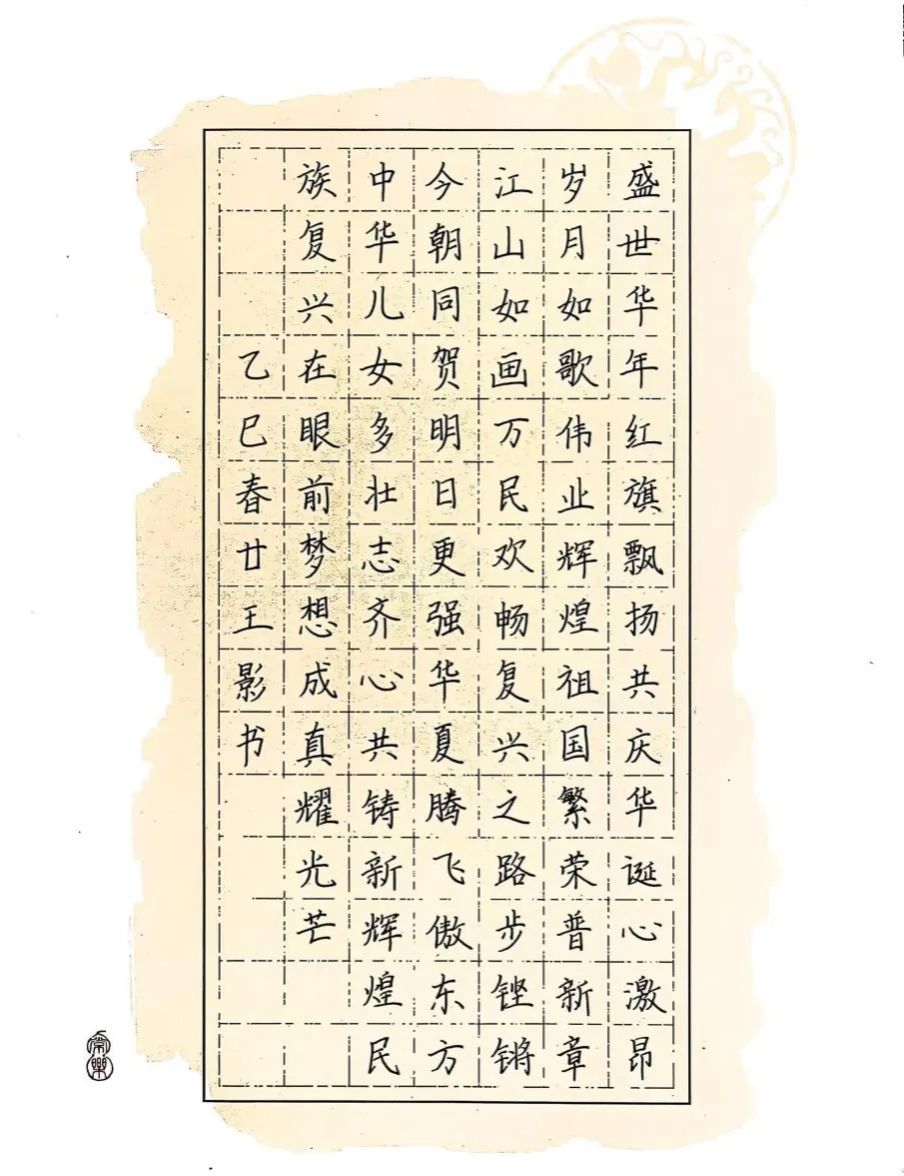 盛世华年红旗飘扬共庆华诞心激昂
岁月如歌伟业辉煌祖国繁荣普新章
江山如画万民欢畅复兴之路步铿锵
今朝同贺明日更强华夏腾飞傲东方
中华儿女多壮志齐心共铸新辉煌民
族复兴在眼前梦想成真耀光芒
乙巳春廿王影书